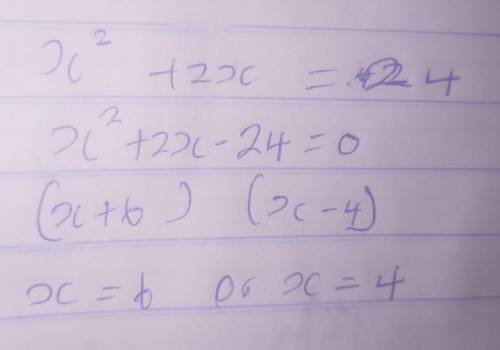 x² + 2x = 24
x² + 2x - 24 = 0
(x + 6) (x - 4)
x = 6 or x = 4